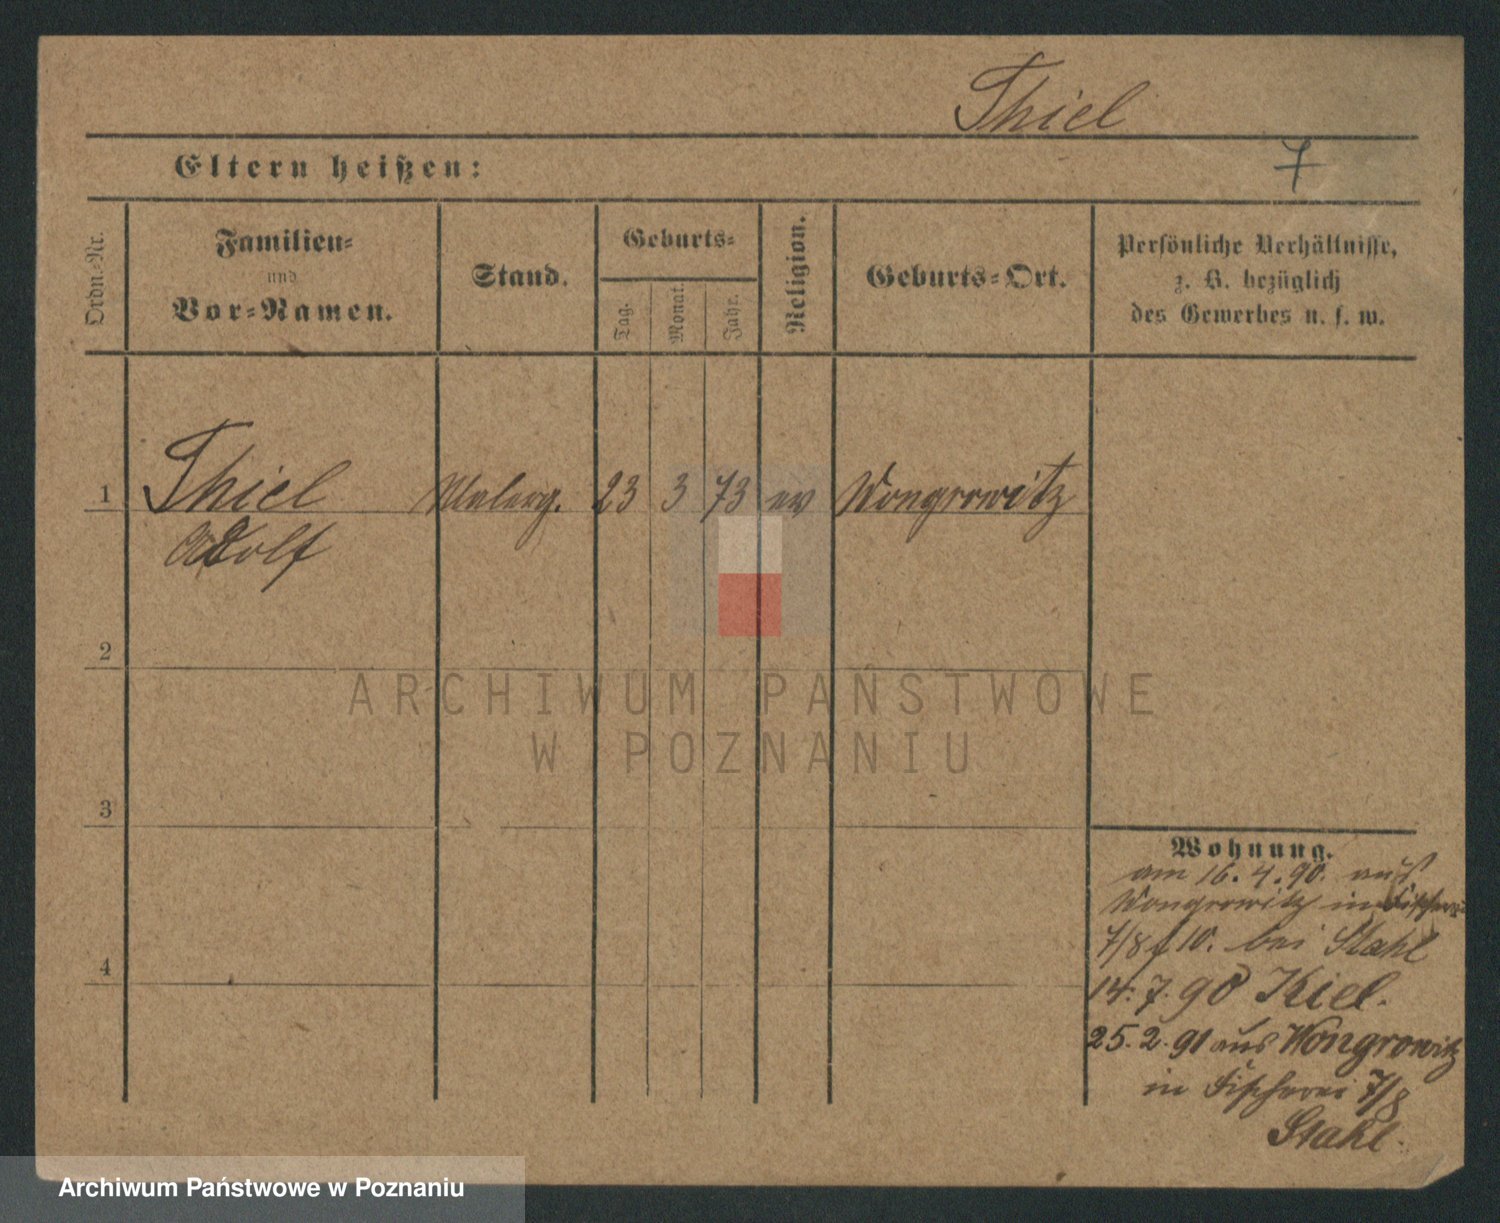 Thiel
Eltern heißen:
7
Ordn.-Nr.
Familien-
und
Vor-Namen.
Stand.
Geburts-
Tag.
Monat.
Jahr.
Religion.
Geburts-Ort.
Persönliche Verhältnisse,
z. B. bezüglich
des Gewerbes u. s. w.
1 Thiel Malerg. 23 3 73 ev Wongrowitz
Adolf
2
3
4
ARCHIWUM PAŃSTWOWE
W POZNANIU
Wohnung.
am 16. 4. 90. aus
Wongrowitz in Fischerei
7/8 10. bei Stahl
14. 7. 90 Kiel.
25. 2. 91 aus Wongrowitz
in Fischerei 7/8
Stahl.
Archiwum Państwowe w Poznaniu